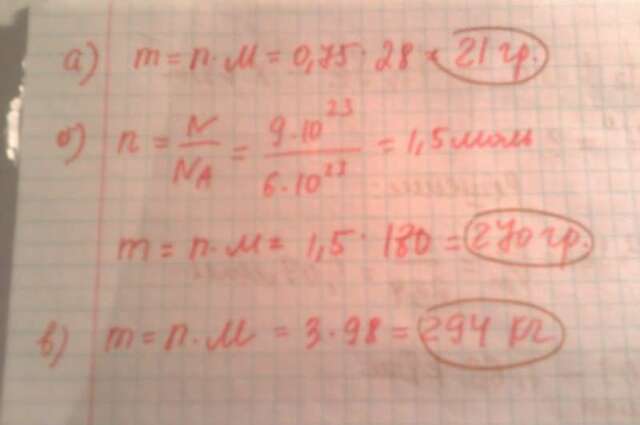 а) m = n · M = 0,75 · 28 = 21 гр.
б) n = N / NA = 9·10²³ / 6·10²³ = 1,5 моль
m = n · M = 1,5 · 180 = 270 гр.
в) m = n · M = 3 · 98 = 294 кг